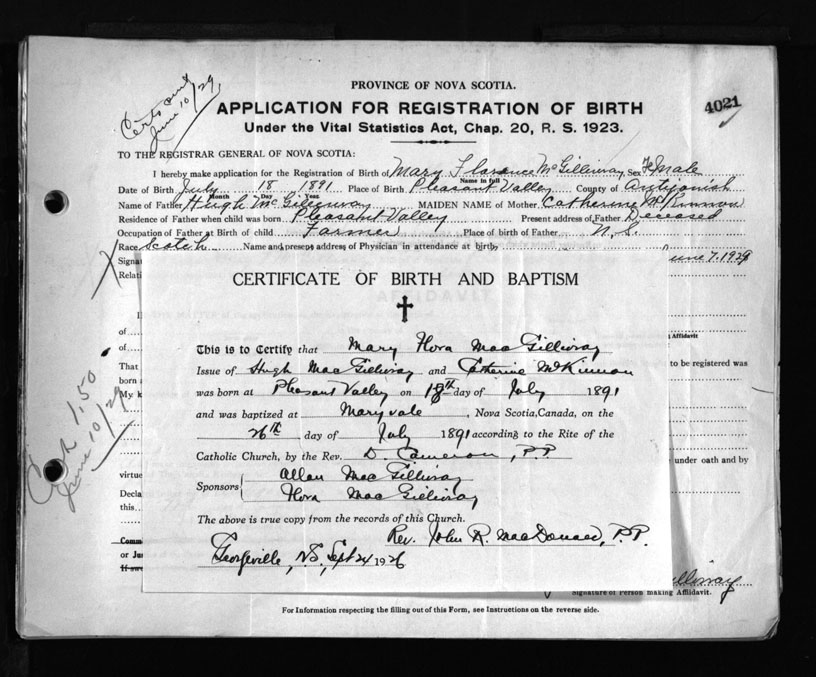 Certs sent
June 10/29
4021
PROVINCE OF NOVA SCOTIA.
APPLICATION FOR REGISTRATION OF BIRTH
Under the Vital Statistics Act, Chap. 20, R. S. 1923.
TO THE REGISTRAR GENERAL OF NOVA SCOTIA:
I hereby make application for the Registration of Birth of Mary Florence McGillivray Sex Female
Name in full
Date of Birth July 18 1891 Place of Birth Pleasant Valley County of Antigonish
Month Day Year
Name of Father Hugh McGillivray MAIDEN NAME of Mother Catherine McKinnon
Residence of Father when child was born Pleasant Valley Present address of Father Deceased
Occupation of Father at Birth of child Farmer Place of birth of Father N.S.
Race Scotch Name and present address of Physician in attendance at birth
Signa June 7. 1929
Relati
CERTIFICATE OF BIRTH AND BAPTISM
This is to Certify that Mary Flora MacGillivray
Issue of Hugh MacGillivray and Catherine McKinnon
was born at Pleasant Valley on 18th day of July 1891
and was baptized at Maryvale, Nova Scotia, Canada, on the
26th day of July 1891 according to the Rite of the
Catholic Church, by the Rev. D. Cameron, P.P.
Sponsors Allan MacGillivray
Flora MacGillivray
The above is true copy from the records of this Church.
Rev. John R. MacDonald, P.P.
Georgeville, N.S., Sept 24 1926
of
of
Affidavit
That to be registered was
born
My k
1.50
June 10/29
under oath and by
virtue
Decla
this
Comm
or Ju
If swo
llivray
Signature of Person making Affidavit.
For Information respecting the filling out of this Form, see Instructions on the reverse side.